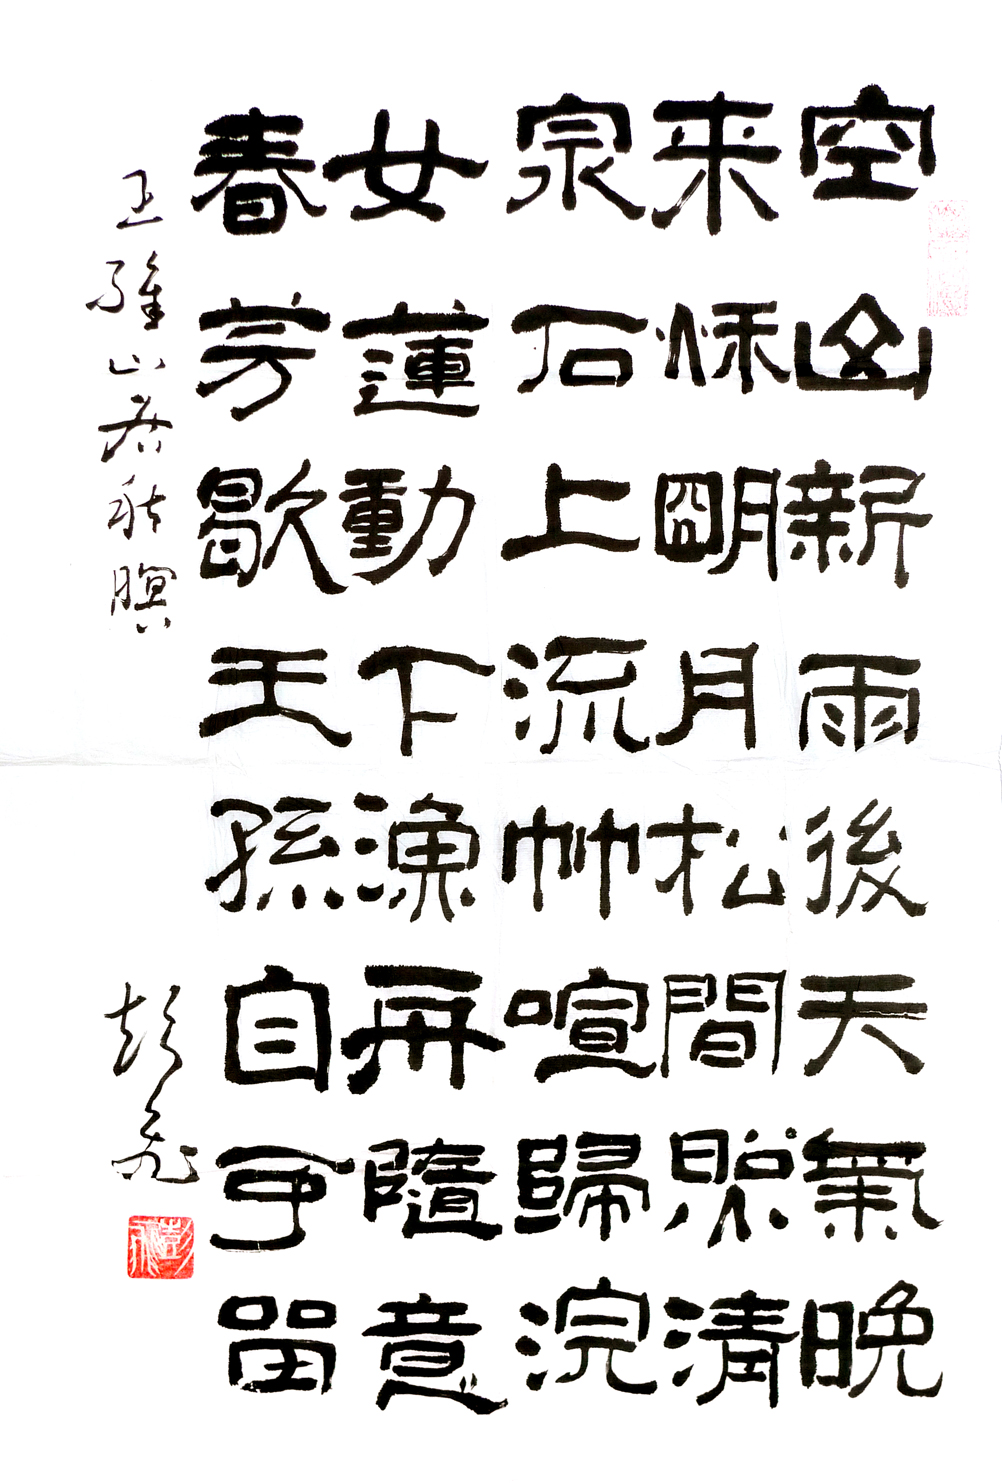 空山新雨後天氣晚
来秌明月松間照清
泉石上流竹喧歸浣
女蓮動下漁舟隨意
春芳歇王孫自可留
王維山居秋暝
彭飛